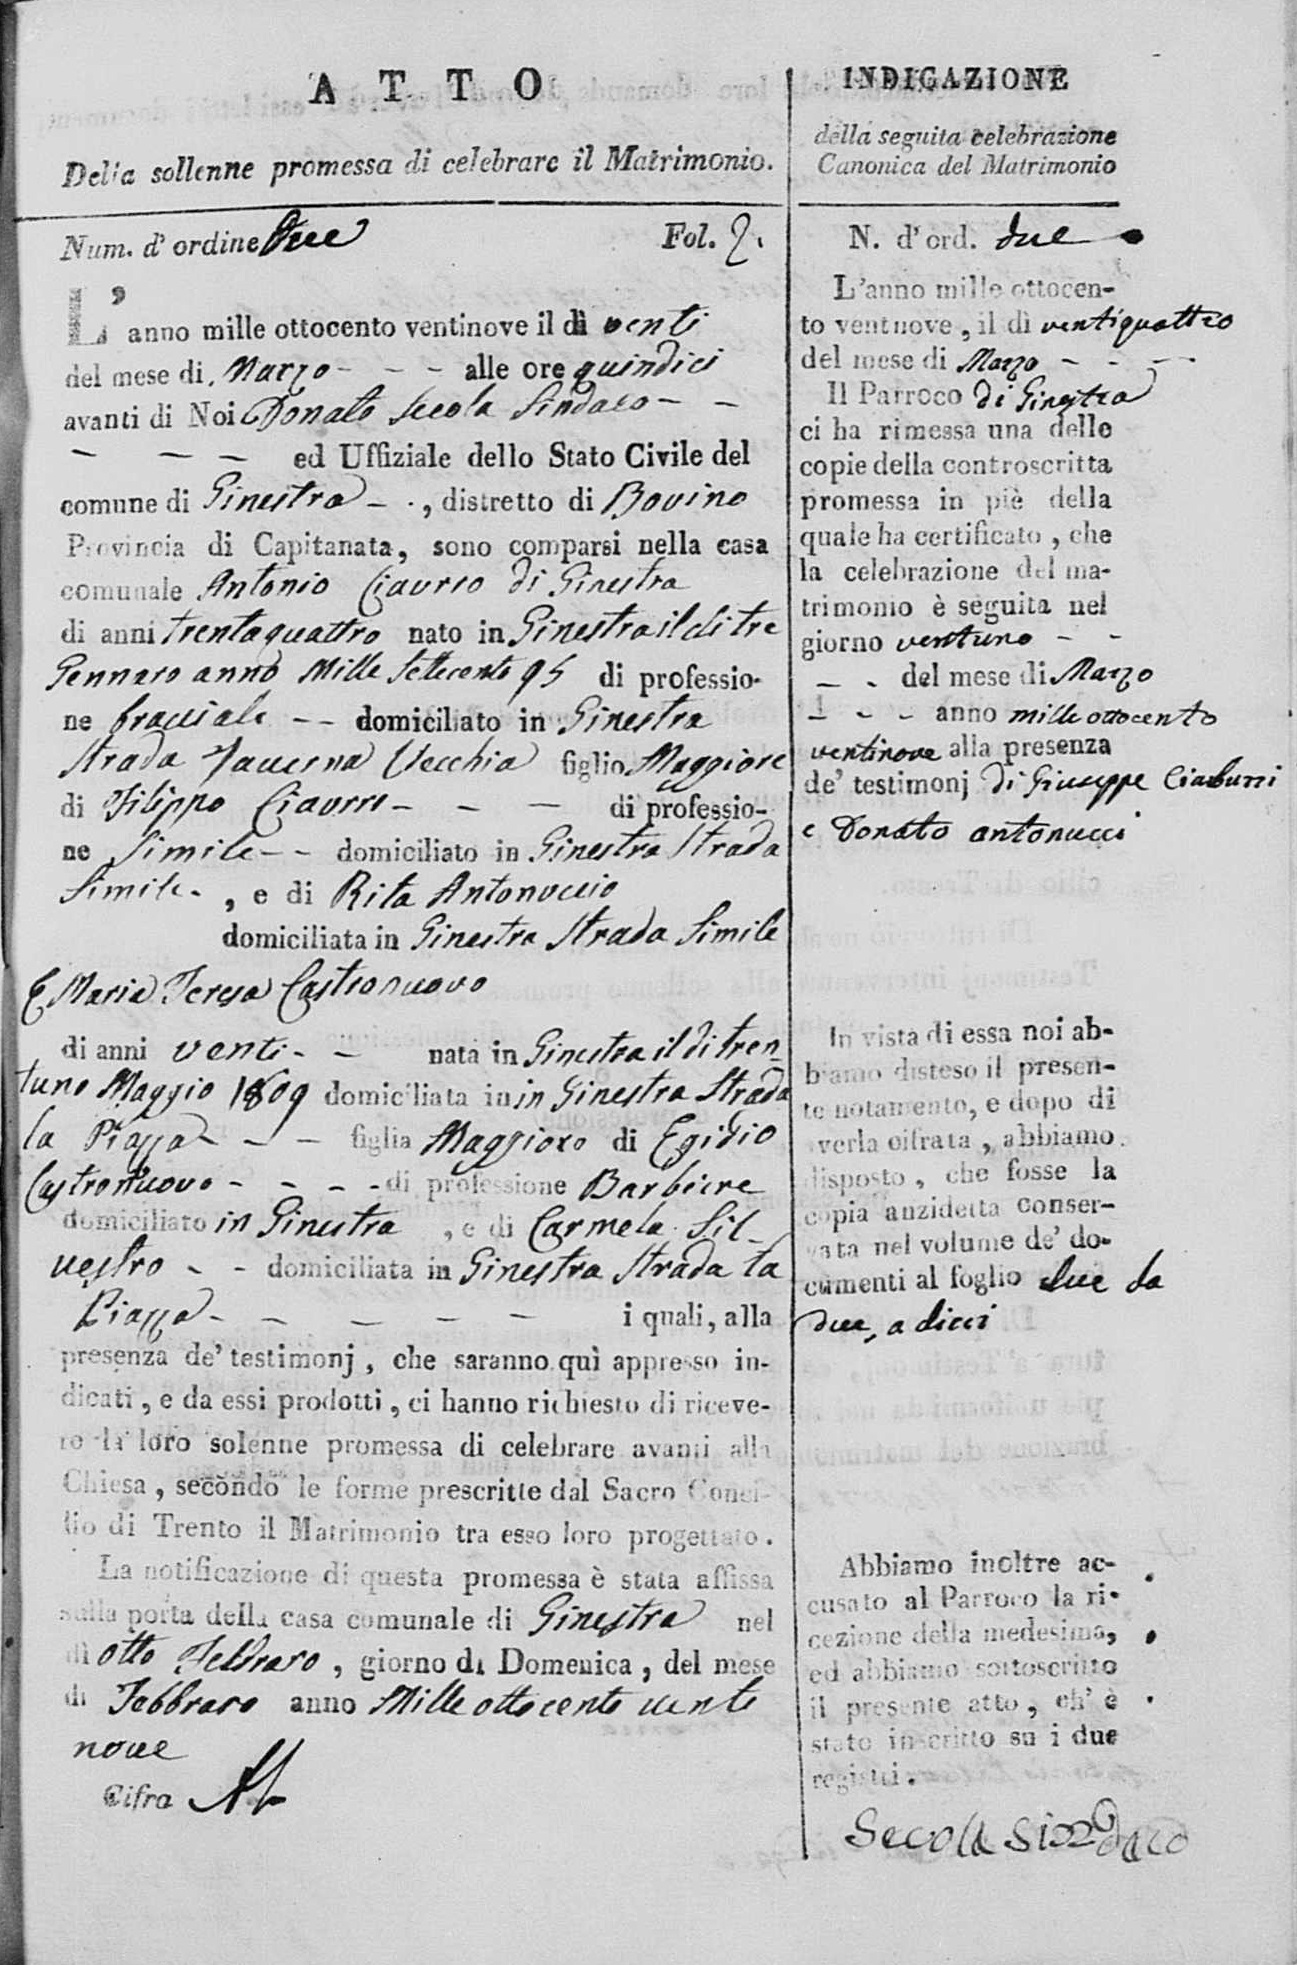 ATTO
Della sollenne promessa di celebrare il Matrimonio.
Num. d' ordine Due Fol. 2.
L'anno mille ottocento ventinove il dì venti
del mese di Marzo - - - alle ore quindici
avanti di Noi Donato Secola Sindaco - -
- - - ed Uffiziale dello Stato Civile del
comune di Ginestra - . , distretto di Bovino
Provincia di Capitanata, sono comparsi nella casa
comunale Antonio Ciavrro di Ginestra
di anni trentaquattro nato in Ginestra il di tre
Gennaro anno Mille Settecento 95 di professio-
ne bracciale - - domiciliato in Ginestra
Strada Taverna Vecchia figlio Maggiore
di Filippo Ciavrro - - - di professio-
ne Simile - - domiciliato in Ginestra Strada
Simile - , e di Rita Antonuccio
domiciliata in Ginestra Strada Simile
E Maria Teresa Castronuovo
di anni venti - - nata in Ginestra il di tren-
tuno Maggio 1809 domiciliata in in Ginestra Strada
la Piazza - - - figlia Maggiore di Egidio
Castronuovo - - - - di professione Barbiere
domiciliato in Ginestra , e di Carmela Sil-
vestro - - domiciliata in Ginestra Strada la
Piazza - - - - - i quali, alla
presenza de' testimonj, che saranno quì appresso in-
dicati, e da essi prodotti, ci hanno richiesto di riceve-
re la loro solenne promessa di celebrare avanti alla
Chiesa, secondo le forme prescritte dal Sacro Conci-
lio di Trento il Matrimonio tra esso loro progettato.
La notificazione di questa promessa è stata affissa
sulla porta della casa comunale di Ginestra nel
dì otto Febbraro , giorno di Domenica, del mese
di Febbraro anno Mille ottocento vente
nove
Cifra
INDICAZIONE
della seguita celebrazione
Canonica del Matrimonio
N. d' ord. due
L'anno mille ottocen-
to ventinove, il dì ventiquattro
del mese di Marzo - - - -
Il Parroco di Ginestra
ci ha rimessa una delle
copie della controscritta
promessa in piè della
quale ha certificato, che
la celebrazione del ma-
trimonio è seguita nel
giorno ventuno - -
- - del mese di Marzo
- - - anno mille ottocento
ventinove alla presenza
de' testimonj di Giuseppe Ciasburri
e Donato antonucci
In vista di essa noi ab-
biamo disteso il presen-
te notamento, e dopo di
averla cifrata, abbiamo
disposto, che fosse la
copia anzidetta conser-
vata nel volume de' do-
cumenti al foglio due da
due, a dieci
Abbiamo inoltre ac-
cusato al Parroco la ri-
cezione della medesima,
ed abbiamo sottoscritto
il presente atto, ch' è
stato inscritto su i due
registri.
Secola Sindaco